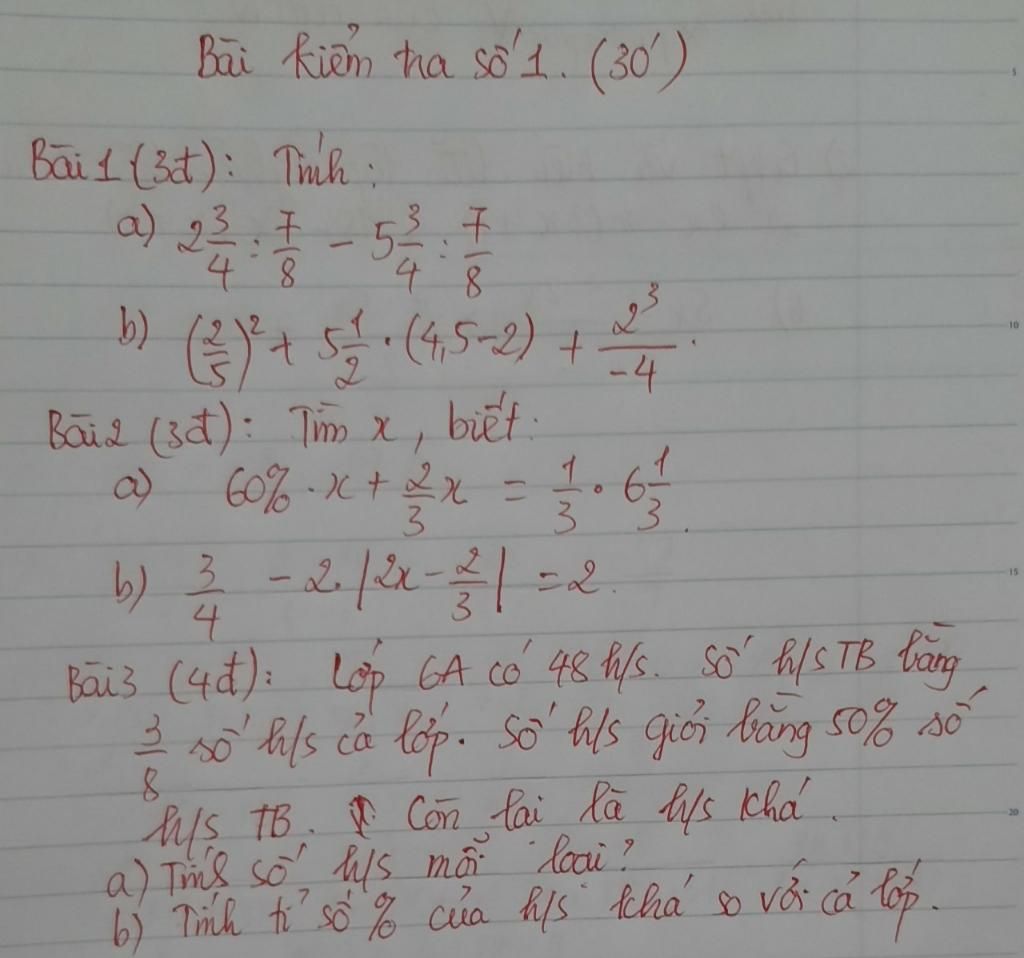 Bài kiểm tra số 1. (30')
Bài 1 (3đ): Tính:
a) 2 3/4 : 7/8 - 5 3/4 : 7/8
b) (2/5)² + 5 1/2 . (4,5-2) + 2³/-4.
Bài 2 (3đ): Tìm x, biết:
a) 60% . x + 2/3 x = 1/3 . 6 1/3.
b) 3/4 - 2. |2x - 2/3| = 2.
Bài 3 (4đ): Lớp 6A có 48 h/s. Số h/s TB bằng
3/8 số h/s cả lớp. Số h/s giỏi bằng 50% số
h/s TB. Còn lại là h/s khá.
a) Tính số h/s mỗi loại?
b) Tính tỉ số % của h/s khá so với cả lớp.
5
10
15
20